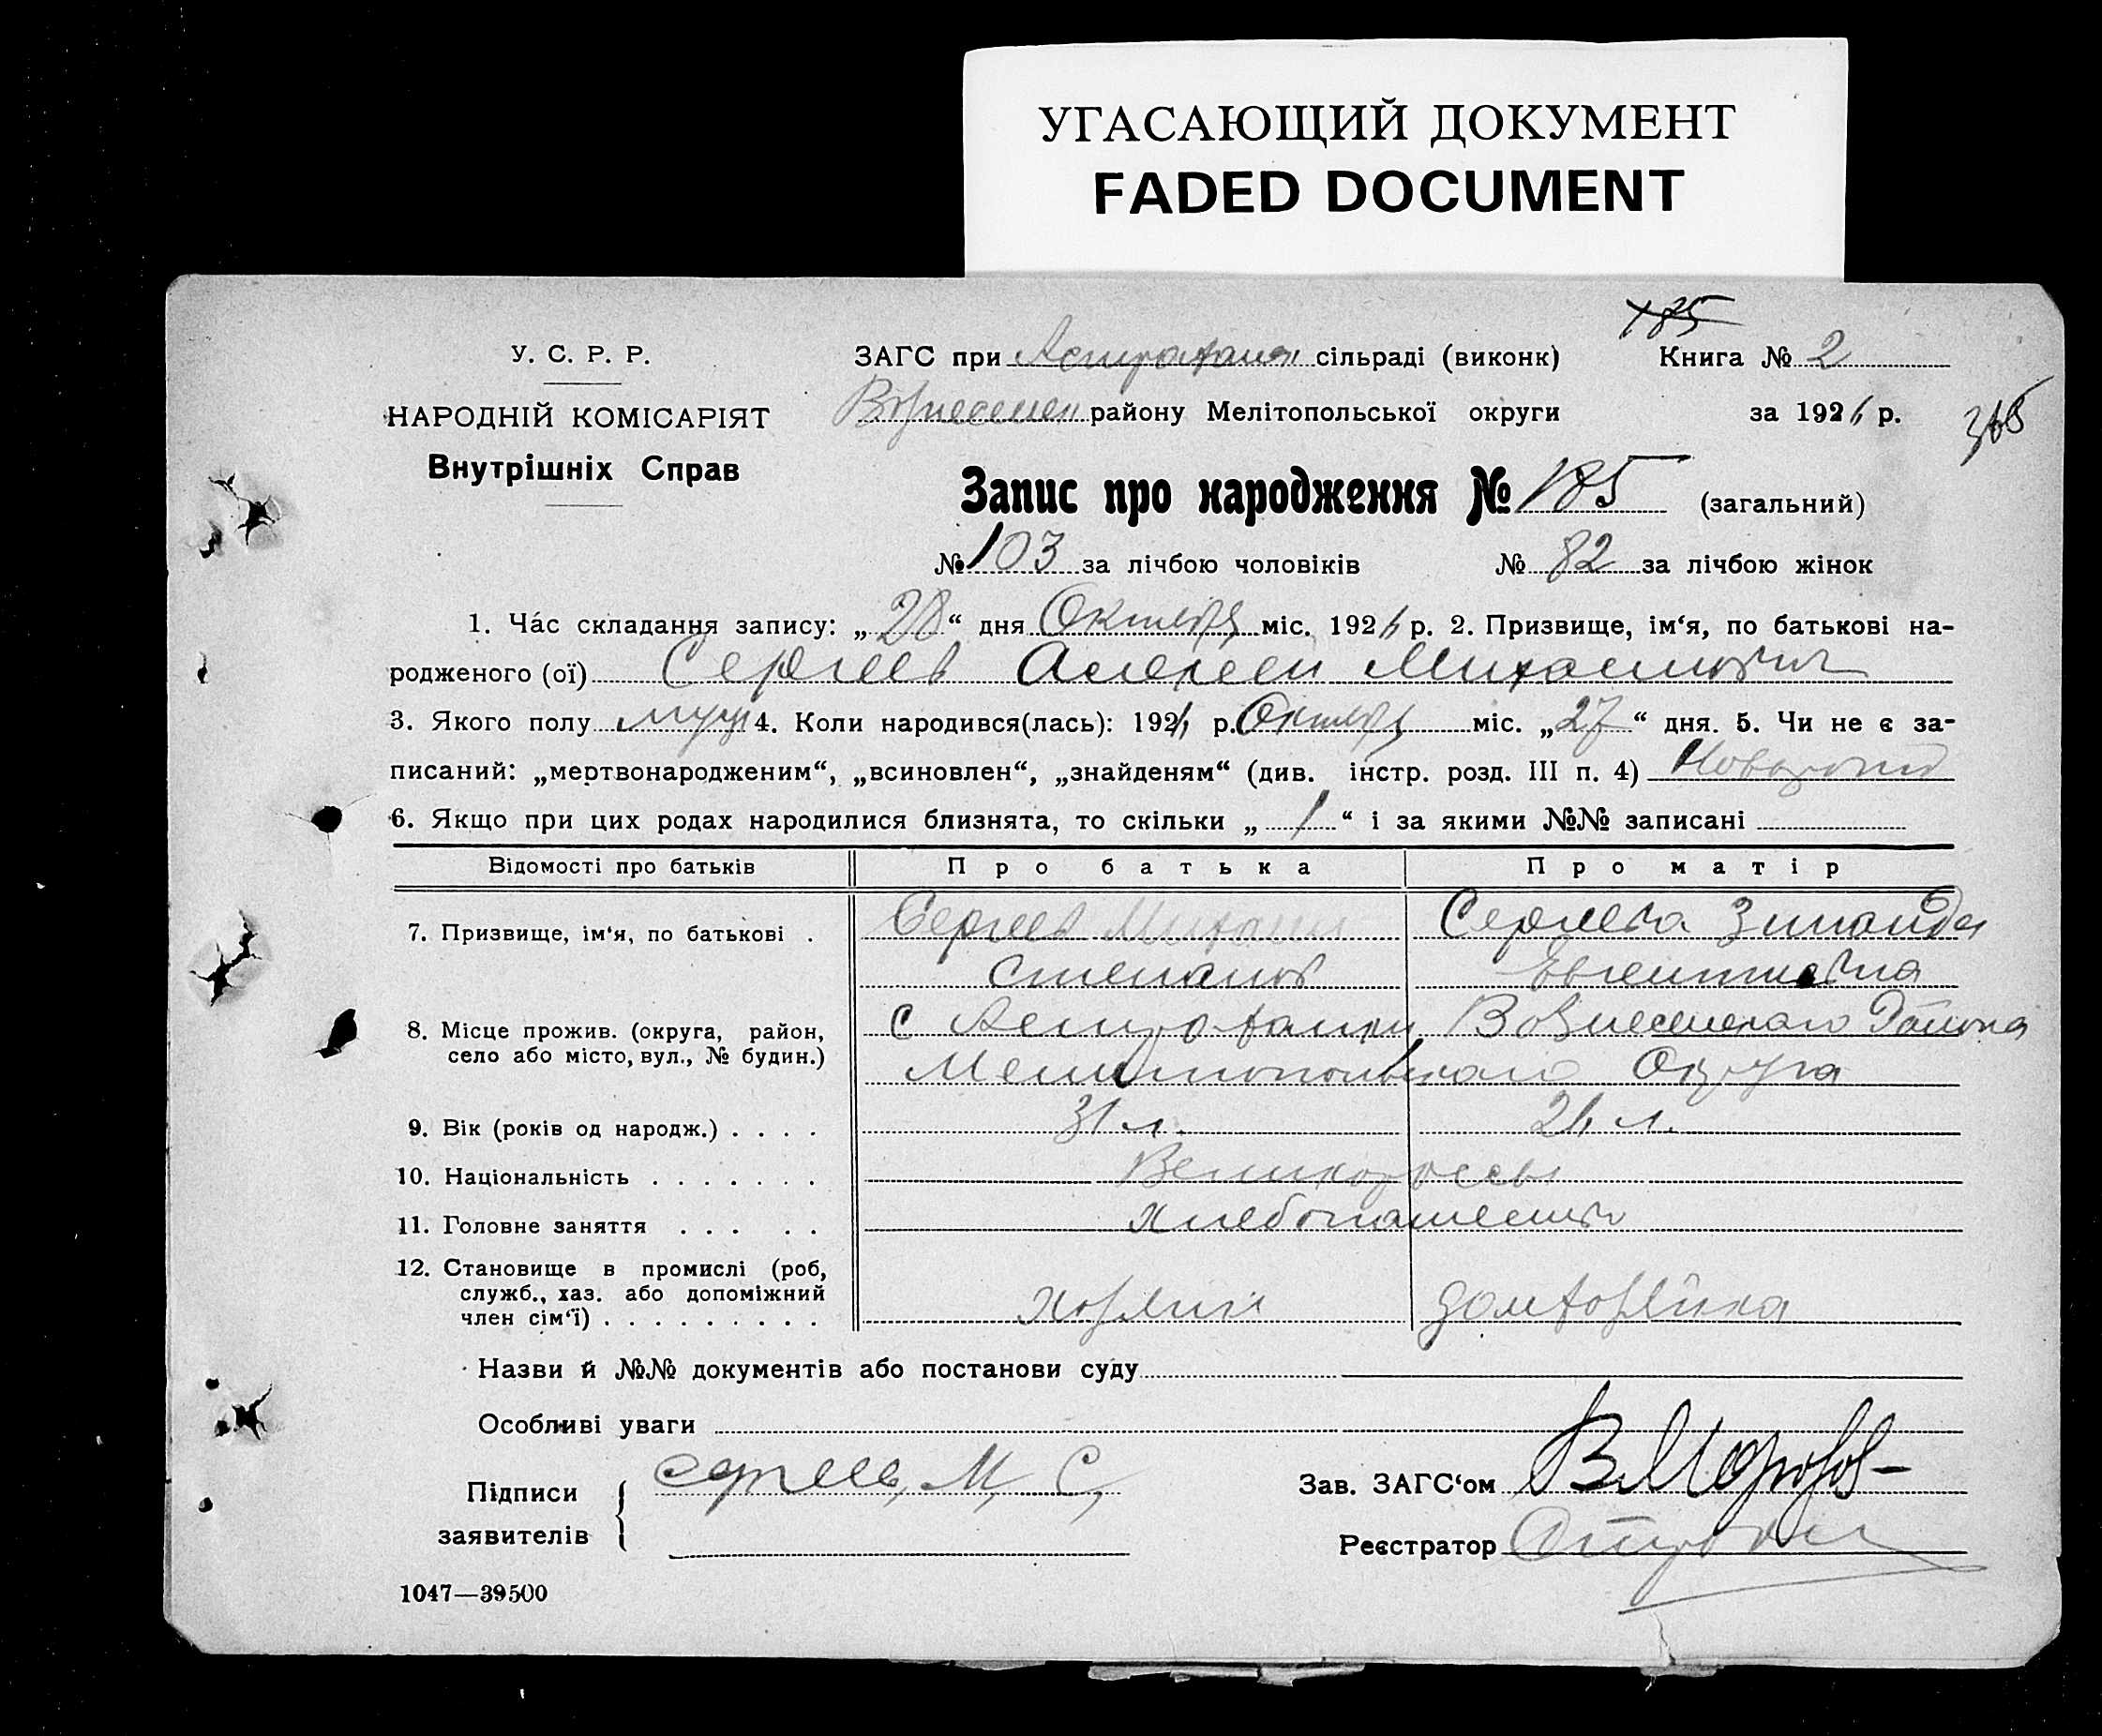 УГАСАЮЩИЙ ДОКУМЕНТ
FADED DOCUMENT
185
У. С. Р. Р.
ЗАГС при Астрахан сільраді (виконк)
Книга № 2
НАРОДНІЙ КОМІСАРІЯТ
Вознесенск району Мелітопольської округи
за 1926 р.
365
Внутрішніх Справ
Запис про народження № 185 (загальний)
№ 103 за лічбою чоловіків № 82 за лічбою жінок
1. Час складання запису: „28“ дня Октября міс. 1926 р. 2. Призвище, ім‘я, по батькові на-
родженого (ої) Сергеев Алексей Михайлович
3. Якого полу муж 4. Коли народився(лась): 1926 р. Октября міс. „27“ дня. 5. Чи не є за-
писаний: „мертвонародженим“, „всиновлен“, „знайденям“ (див. інстр. розд. III п. 4)
6. Якщо при цих родах народилися близнята, то скільки „1“ і за якими №№ записані
Відомості про батьків Про батька Про матір
7. Призвище, ім‘я, по батькові . Сергеев Михаил Сергеева Зинаида
Степанов Евгентиевна
8. Місце прожив. (округа, район,
село або місто, вул., № будин.)
с Астраханки Вознесенского Района
Мелитопольского Округа
9. Вік (років од народж.) . . . . 31 л. 26 л.
10. Національність . . . . . . . Великороссы
11. Головне заняття . . . . . Хлебопашество
12. Становище в промислі (роб,
служб., хаз. або допоміжний
член сім‘ї) . . . . . . . . . хозяин домхозяйка
Назви й №№ документів або постанови суду
Особливі уваги
Підписи
заявителів
Сергеев, М, С,
Зав. ЗАГС‘ом В Морозов
Реєстратор
1047—39500